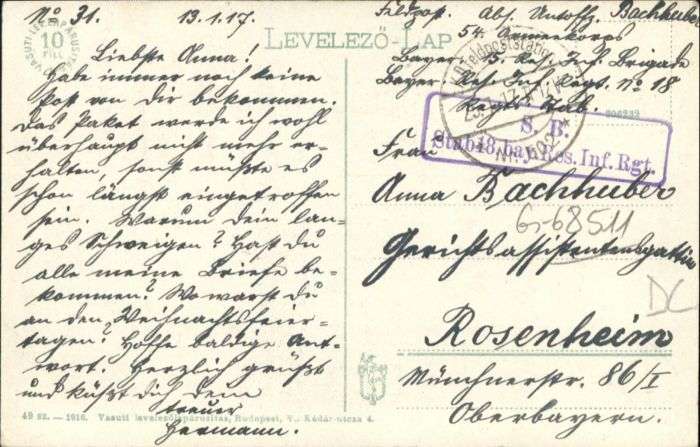 No 31. 13.1.17.
Liebste Anna!
Habe immer noch keine
Post von dir bekommen.
Das Paket werde ich wohl
überhaupt nicht mehr er=
halten, sonst müßte es
schon längst eingetroffen
sein. Warum dein lan=
ges Schweigen? Hast du
alle meine Briefe be=
kommen? Wo warst du
an den Weihnachtsfeier=
tagen? Hoffe baldige Ant=
wort. Herzlich grüßt
und küßt dich dein
treuer
Hermann.
10
FILL
LEVELEZŐ-LAP
Feldpost. Abs. Untoffz. Bachhuber
54. Armeekorps
Bayer. Res. Inf. Brigade
Bayer. Res. Inf. Regt. No 18
Regts. Stab.
S. B.
Stab 18. bay. Res. Inf. Rgt
Frau
Anna Bachhuber
G-68511
Gerichtsassistentensgattin
DC
Rosenheim
Münchnerstr. 86/I
Oberbayern.
49 sz. — 1916. Vasuti levelezőlapárusitás, Budapest, V., Kádár-utcza 4.